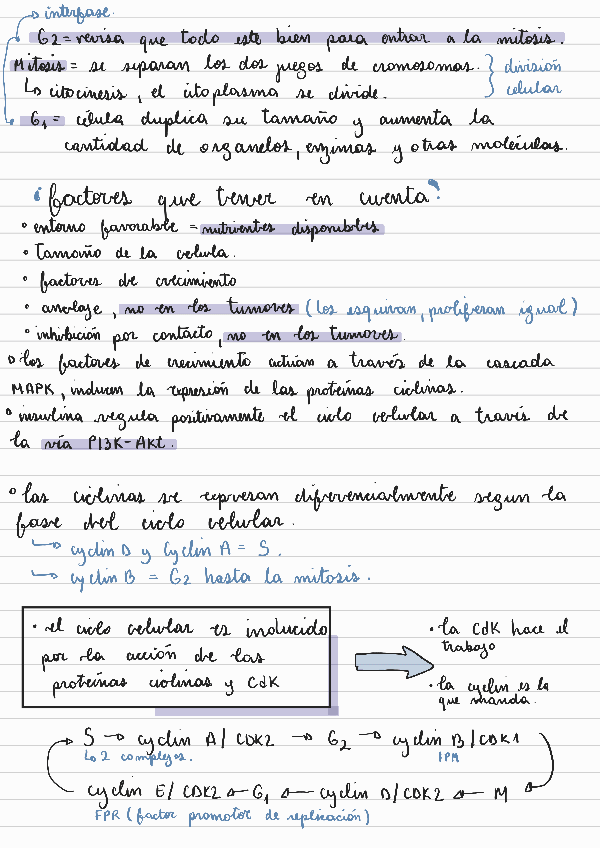 interfase.
G2 = revisa que todo este bien para entrar a la mitosis.
Mitosis = se separan los dos juegos de cromosomas. división
↳ citocinesis, el citoplasma se divide. celular
G1 = célula duplica su tamaño y aumenta la
cantidad de organelos, enzimas y otras moléculas.
¡factores que tener en cuenta!
• entorno favorable = nutrientes disponibles
• Tamaño de la celula.
• factores de crecimiento
• anclaje, no en los tumores (los esquivan, proliferan igual)
• inhibición por contacto, no en los tumores.
• los factores de crecimiento actúan a través de la cascada
MAPK, inducen la represión de las proteínas ciclinas.
• insulina regula positivamente el ciclo celular a través de
la vía PI3K-Akt.
• las ciclinas se expresan diferencialmente segun la
fase del ciclo celular.
↳ cyclin D y Cyclin A = S.
↳ cyclin B = G2 hasta la mitosis.
• el ciclo celular es inducido
por la acción de las
proteínas ciclinas y CdK
• la CdK hace el
trabajo
• la cyclin es la
que manda.
S → cyclin A/CDK2 → G2 → cyclin B/CDK1
↳ 2 complejos.
cyclin E/CDK2 ← G1 ← cyclin D/CDK2 ← M
FPR (factor promotor de replicación)